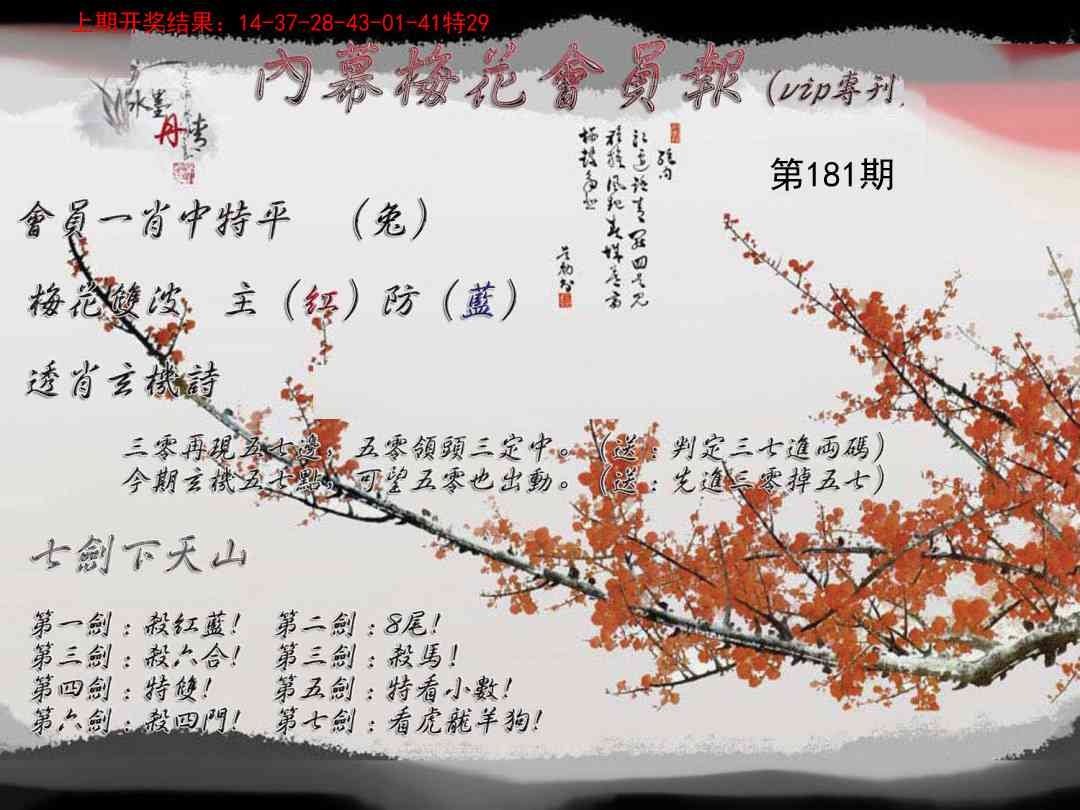 上期开奖结果：14-37-28-43-01-41特29
內幕梅花會員報（vip專刊
水墨
丹青
第181期
會員一肖中特平　（兔）
梅花雙波　主（紅）防（藍）
透肖玄機詩
三零再現五七邊，五零領頭三定中。（送：判定三七進兩碼）
今期玄機五七點，可望五零也出動。（送：先進三零掉五七）
七劍下天山
第一劍：殺紅藍！　第二劍：8尾！
第三劍：殺六合！　第三劍：殺馬！
第四劍：特雙！　第五劍：特看小數！
第六劍：殺四門！　第七劍：看虎龍羊狗！